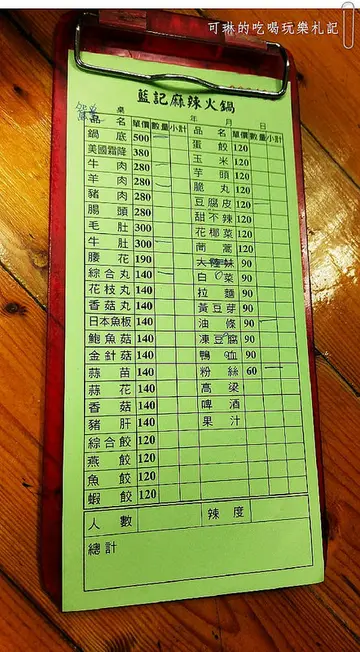 可琳的吃喝玩樂札記
藍記麻辣火鍋
桌 年 月 日
品名 單價 數量 小計 品名 單價 數量 小計
鍋底 500 蛋餃 120
美國霜降 380 玉米 120
牛肉 280 芋頭 120
羊肉 280 脆丸 120
豬肉 280 豆腐皮 120
腸頭 280 甜不辣 120
毛肚 300 花椰菜 120
牛肚 300 茼蒿 120
腰花 190 90
綜合丸 140 白菜 90
花枝丸 140 拉麵 90
香菇丸 140 黃豆芽 90
日本魚板 140 油條 90
鮑魚菇 140 凍豆腐 90
金針菇 140 鴨血 90
蒜苗 140 粉絲 60
蒜花 140 高梁
香菇 140 啤酒
豬肝 140 果汁
綜合餃 120
燕餃 120
魚餃 120
蝦餃 120
人數 辣度
總計